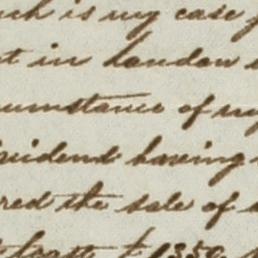 ch is my case
in London
cumstance of my
vidend having
red the sale of
least to 1350